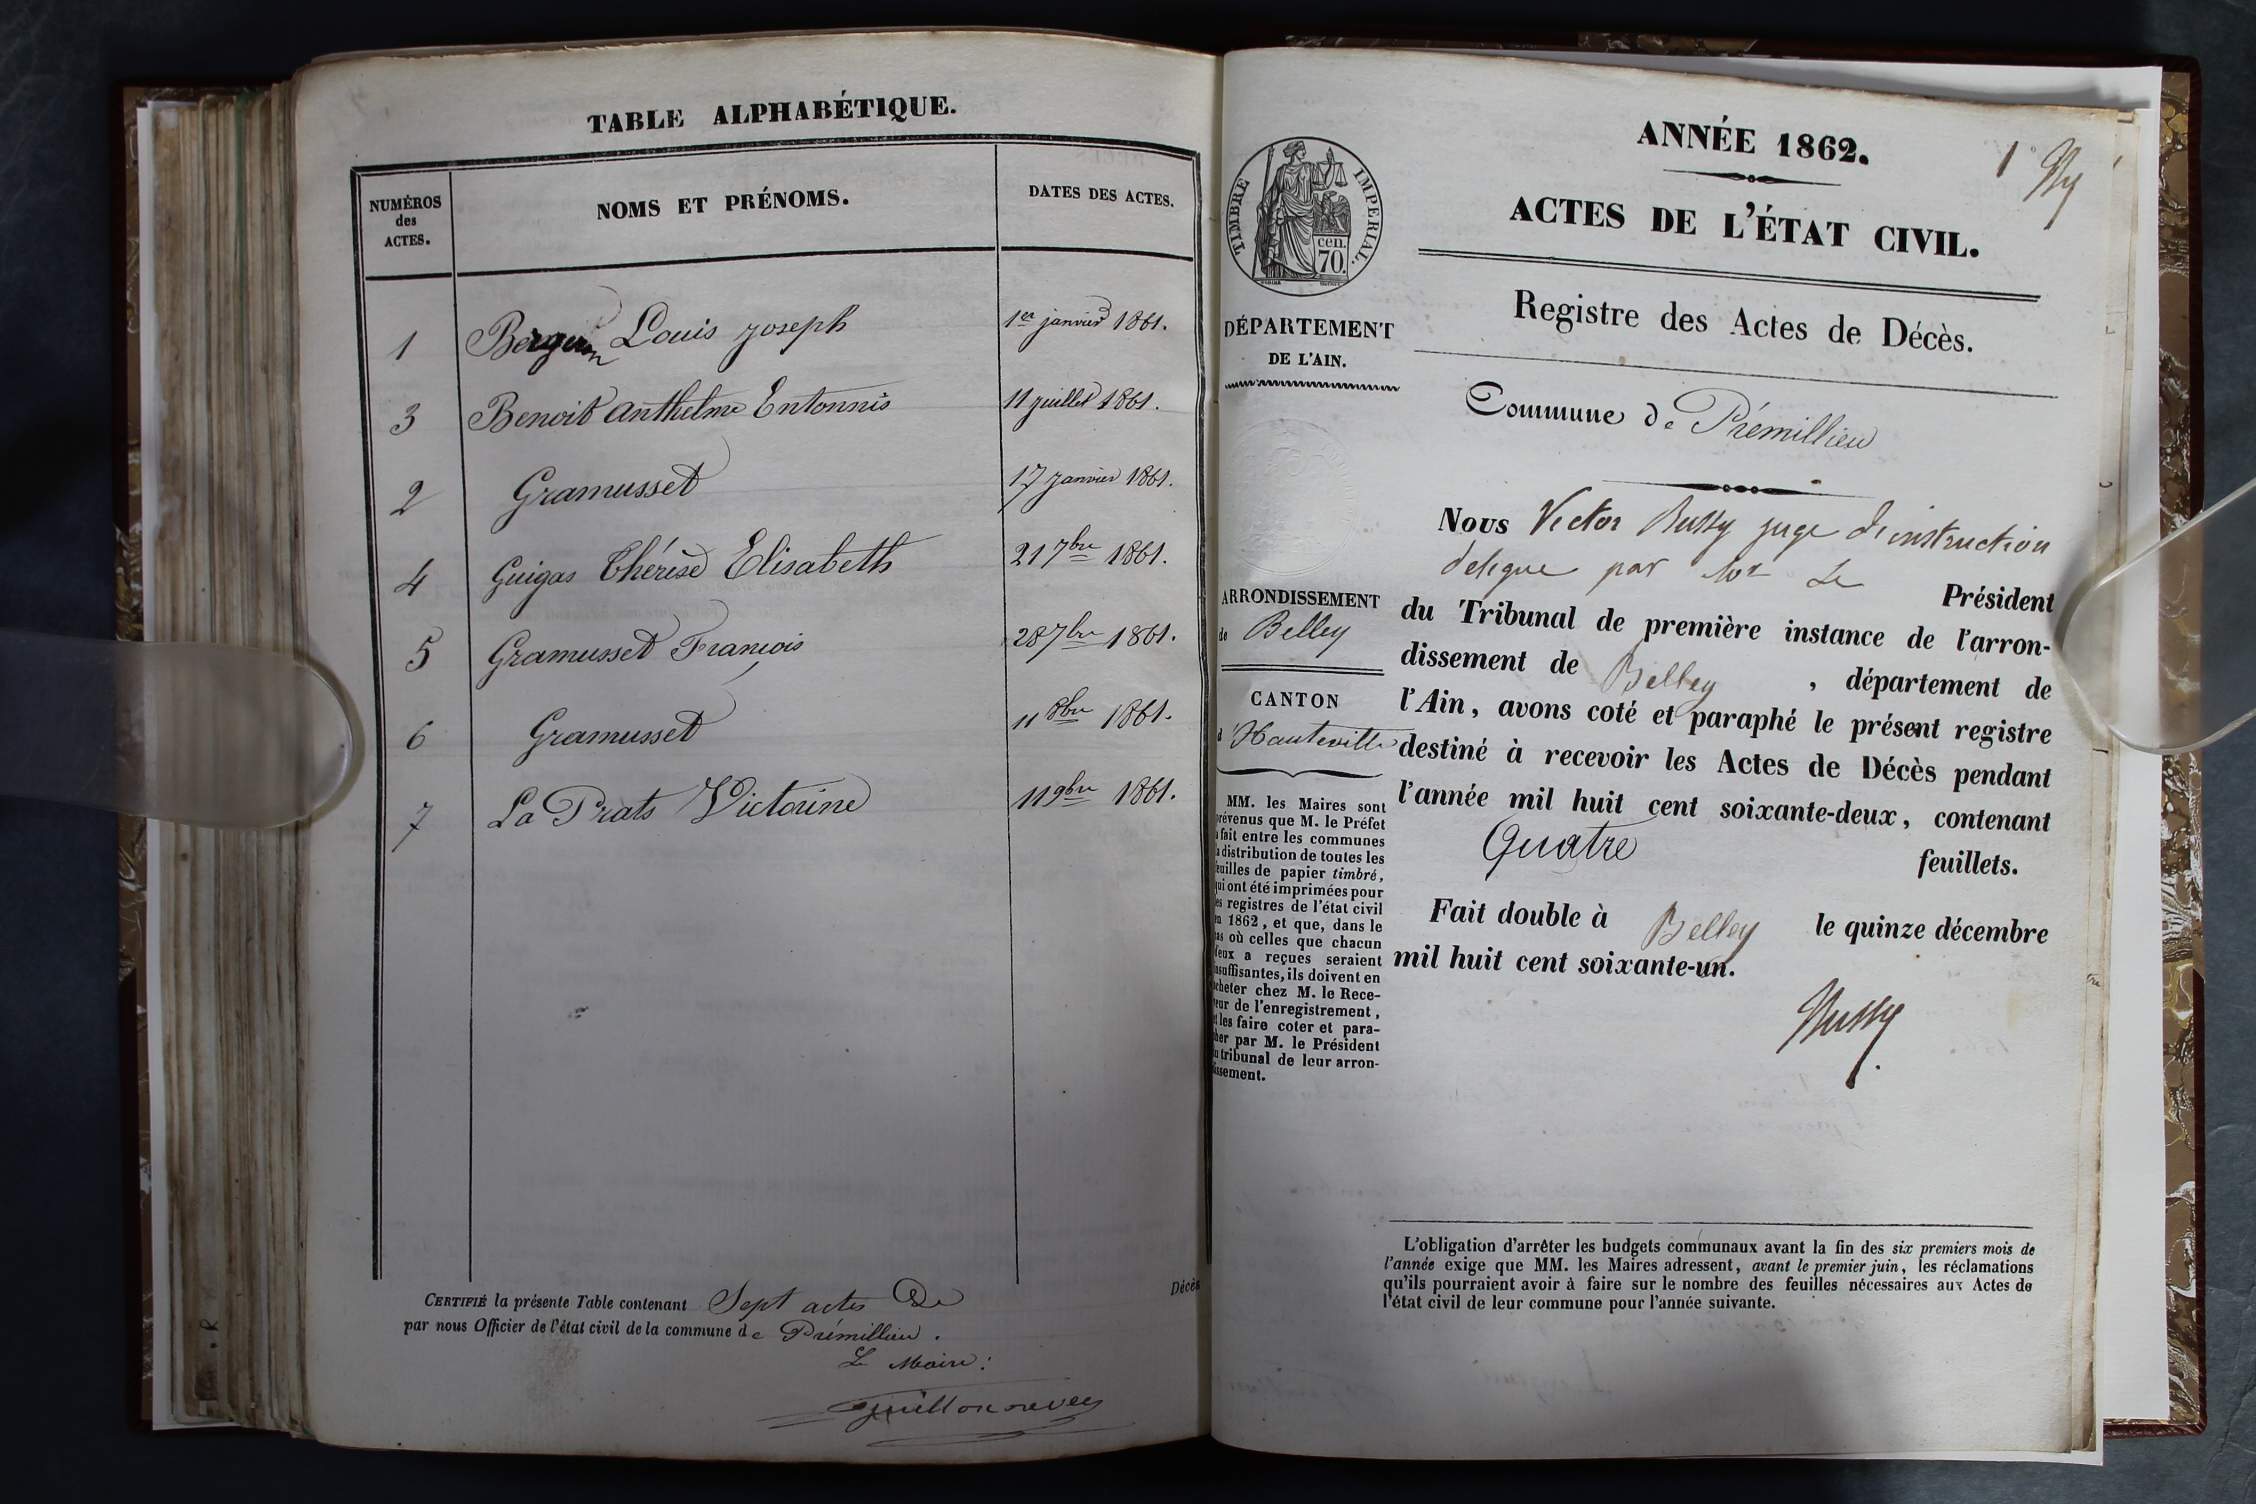 TABLE ALPHABÉTIQUE.
NUMÉROS
des
ACTES.
NOMS ET PRÉNOMS.
DATES DES ACTES.
1 Louis joseph 1er janvier 1861.
3 Benoit anthelme Entonnis 11 juillet 1861.
2 Gramusset 17 janvier 1861.
4 Guigas Thérèse Elisabeth 21 7bre 1861.
5 Gramusset François 28 7bre 1861.
6 Gramusset 11 8bre 1861.
7 La Prats Victorine 11 9bre 1861.
CERTIFIÉ la présente Table contenant Sept actes De Décès
par nous Officier de l'état civil de la commune de Prémillieu.
Le Maire:
ANNÉE 1862.
1
ACTES DE L'ÉTAT CIVIL.
Registre des Actes de Décès.
TIMBRE IMPERIAL.
cen.
70.
DÉPARTEMENT
DE L'AIN.
ARRONDISSEMENT
de Belley
CANTON
d'Hauteville
MM. les Maires sont
prévenus que M. le Préfet
a fait entre les communes
la distribution de toutes les
feuilles de papier timbré,
qui ont été imprimées pour
les registres de l'état civil
en 1862, et que, dans le
cas où celles que chacun
d'eux a reçues seraient
insuffisantes, ils doivent en
acheter chez M. le Rece-
veur de l'enregistrement,
et les faire coter et para-
pher par M. le Président
du tribunal de leur arron-
dissement.
Commune de Prémillieu
Nous Victor Bussy juge d'instruction
delegue par Mr Le Président
du Tribunal de première instance de l'arron-
dissement de Belley, département de
l'Ain, avons coté et paraphé le présent registre
destiné à recevoir les Actes de Décès pendant
l'année mil huit cent soixante-deux, contenant
Quatre feuillets.
Fait double à Belley le quinze décembre
mil huit cent soixante-un.
Bussy
L'obligation d'arrêter les budgets communaux avant la fin des six premiers mois de
l'année exige que MM. les Maires adressent, avant le premier juin, les réclamations
qu'ils pourraient avoir à faire sur le nombre des feuilles nécessaires aux Actes de
l'état civil de leur commune pour l'année suivante.